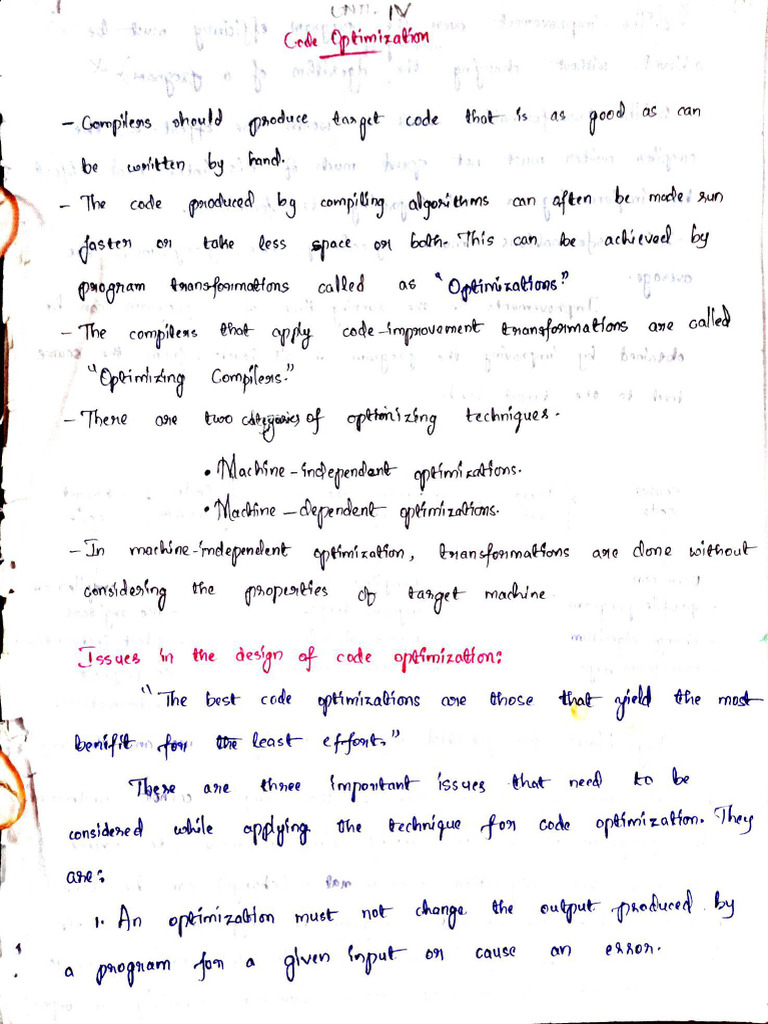 UNIT - IV
Code Optimization
- Compilers should produce target code that is as good as can
be written by hand.
- The code produced by compiling algorithms can often be made run
faster or take less space or both. This can be achieved by
program transformations called as "Optimizations."
- The compilers that apply code-improvement transformations are called
"Optimizing Compilers."
- There are two categories of optimizing techniques.
• Machine-independent optimizations.
• Machine-dependent optimizations.
- In machine-independent optimization, transformations are done without
considering the properties of target machine
Issues in the design of code optimization:
"The best code optimizations are those that yield the most
benifit for the least effort."
There are three important issues that need to be
considered while applying the technique for code optimization. They
are:
1. An optimization must not change the output produced by
a program for a given input or cause an error.